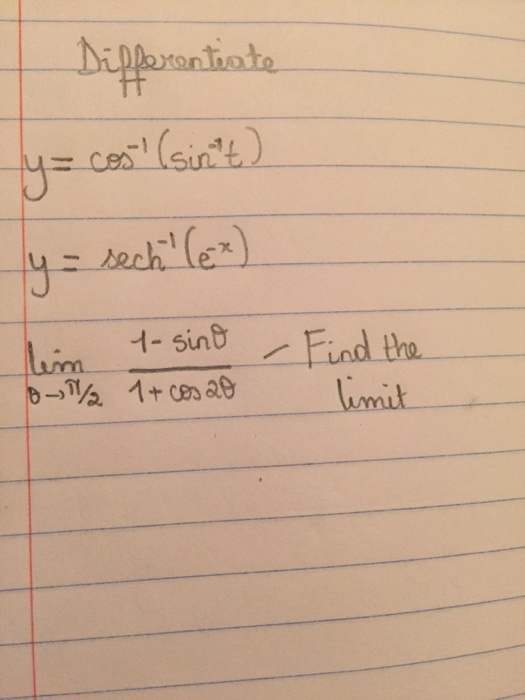 Differentiate
y = cos⁻¹(sin⁻¹t)
y = sech⁻¹(e⁻ˣ)
lim θ→π/2 (1 - sinθ)/(1 + cos2θ) – Find the
limit